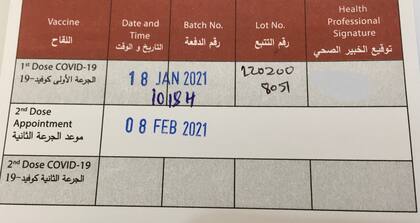 Vaccine
اللقاح
Date and Time
التاريخ و الوقت
Batch No.
رقم الدفعة
Lot No.
رقم التتبع
Health Professional Signature
توقيع الخبير الصحي
1st Dose COVID-19
الجرعة الأولى كوفيد-19
18 JAN 2021
220200
8051
2nd Dose Appointment
موعد الجرعة الثانية
08 FEB 2021
2nd Dose COVID-19
الجرعة الثانية كوفيد-19